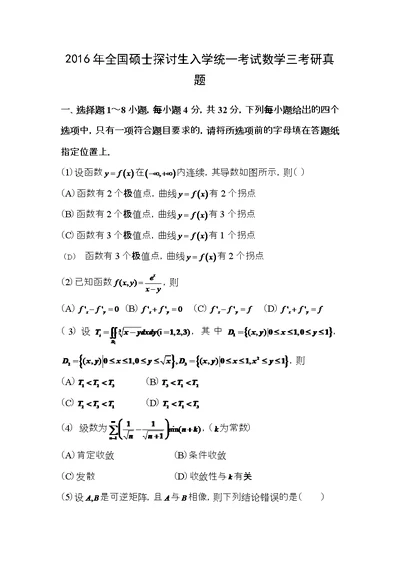 2016 年全国硕士探讨生入学统一考试数学三考研真
题
一、选择题 1～8 小题，每小题 4 分，共 32 分，下列每小题给出的四个
选项中，只有一项符合题目要求的，请将所选项前的字母填在答题纸
指定位置上.
(1)设函数 y = f(x) 在 (−∞,+∞) 内连续，其导数如图所示，则( )
(A)函数有 2 个极值点，曲线 y = f(x) 有 2 个拐点
(B)函数有 2 个极值点，曲线 y = f(x) 有 3 个拐点
(C)函数有 3 个极值点，曲线 y = f(x) 有 1 个拐点
(D) 函数有 3 个极值点，曲线 y = f(x) 有 2 个拐点
(2)已知函数 f(x,y) = e^x/(x−y)，则
(A) f'x − f'y = 0 (B) f'x + f'y = 0 (C) f'x − f'y = f (D) f'x + f'y = f
(3) 设 Ti = ∬Di ∛(x−y)dxdy(i=1,2,3)，其中 D1 = {(x,y)|0≤x≤1,0≤y≤1}，
D2 = {(x,y)|0≤x≤1,0≤y≤√x}, D3 = {(x,y)|0≤x≤1,x²≤y≤1}，则
(A) (B)
(C) (D)
(4) 级数为 ∑n=1∞ (1/√n − 1/√(n+1)) sin(n+k)，( k 为常数)
(A)肯定收敛 (B)条件收敛
(C)发散 (D)收敛性与 k 有关
(5)设 A,B 是可逆矩阵，且 A 与 B 相像，则下列结论错误的是( )